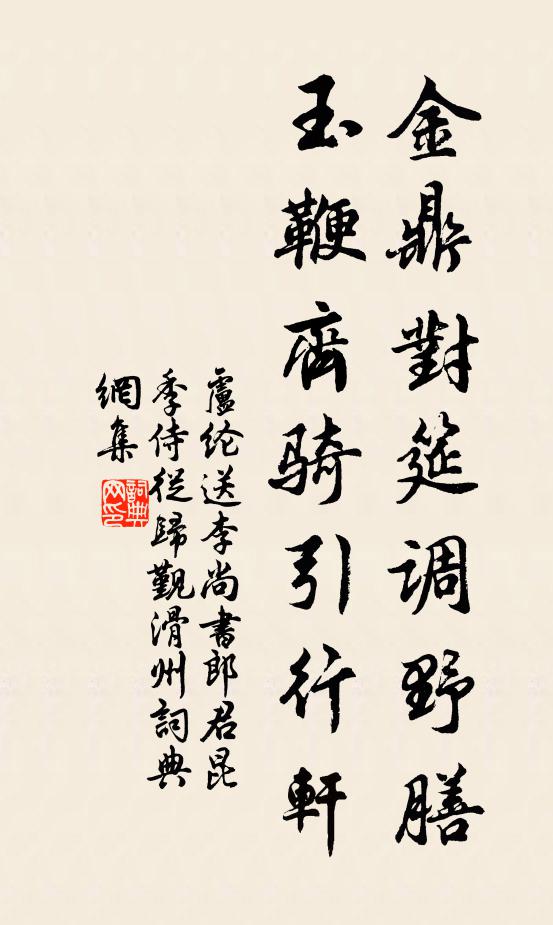 金鼎對筵调野膳
玉鞭齊骑引行軒
盧纶送李尚書郎君昆
季侍從歸觐滑州詞典
網集
詞典网印